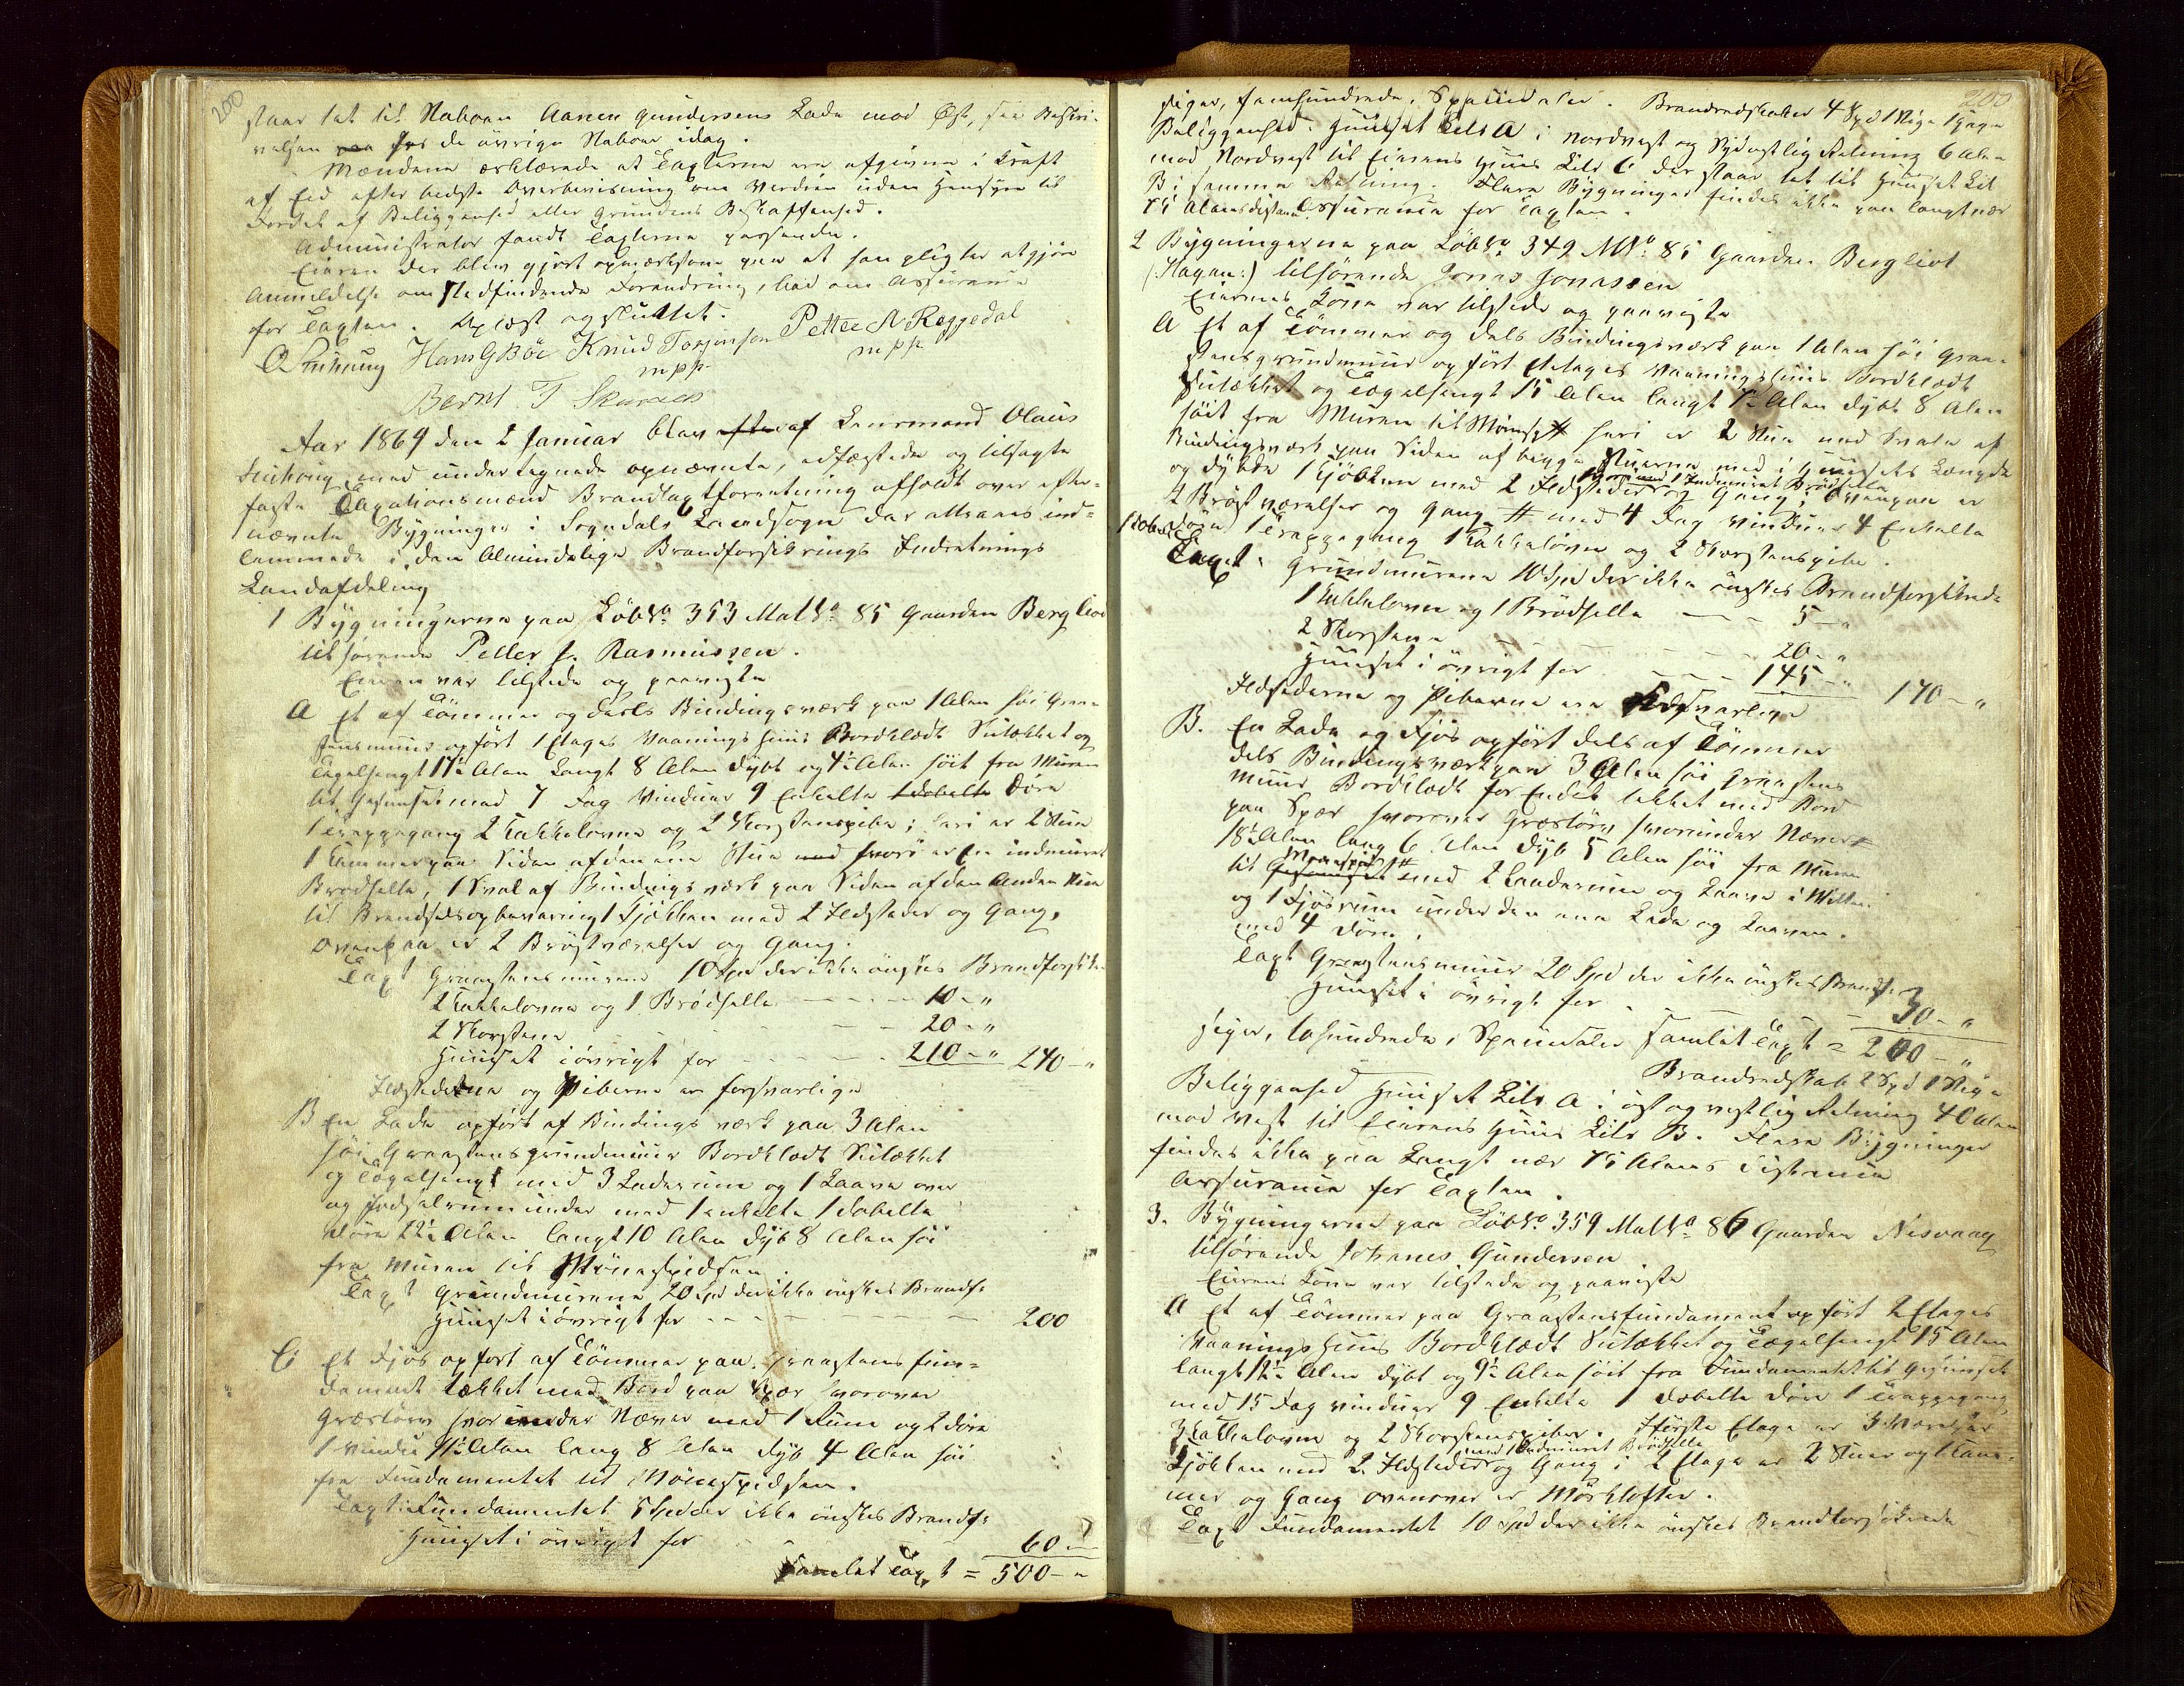 200
staar tæt til Naboen Aanen Gundersens Lade mod Øst, see Beskri-
velsen hos de øvrige Naboer idag.
Mændene erklærede at Taxterne ere afgivne i Kraft
af Eed efter bedste Overbeviisning om Verdien uden Hensyn til
Fordel af Beliggenhed eller Grundens Beskaffenhed.
Administrator fandt Taxterne passende.
Eieren der blev gjort opmærksom paa at han pligter at gjøre
Anmeldelse om stedfindende Forandring, bad om Assurance
for Taxten. Oplæst og sluttet.
Hans G Böe Knud Torjersen Petter N Regedal
mpp mpp
Bernt T
Aar 1869 den 2 Januar blev af Lensmand Olaus
med undertegnede opnævnte, edfæstede og tilsagte
faste Taxationsmænd Brandtaxtforretning afholdt over efter-
nævnte Bygninger i Sogndals Landsogn der attraaes ind-
lemmede i den Almindelige Brandforsikrings Indretnings
Landafdeling
1 Bygningerne paa LöbNo 353 MatNo 85 Gaarden Bergliod
tilhørende Petter J. Rasmussen.
Eieren var tilstede og paaviste
A Et af Tömmer og deels Bindingsværk paa 1 Alen höi Graa-
steensmuur opfört 1 Etages Vaaningshuus Bordklædt Sutækket og
Tegelhengt 17½ Alen Langt 8 Alen dybt og 4½ Alen höit fra Muren
til Gesimset med 7 Fag Vinduer 9 Enkelte Döre
1 Trappegang 2 Kakkelovne og 2 Skorsteenspiber; heri er 2 Stue
1 Kammer paa Siden af den ene Stue hvori er En indmuret
Brödhelle, 1 Sval af Bindingsværk paa Siden af den anden Stue
til Brændselsopbevaring 1 Kjökken med 2 Ildsteder og Gang,
ovenpaa er 2 Bröstværelser og Gang.
Taxt Graasteensmuren 10 Spd der ikke önskes Brandforsik
2 Kakkelovne og 1 Brödhelle - - - - 10 - "
2 Skorstene - - - 20 - "
Huuset iövrigt for - - - - - 210 - " 240 - "
Ildstederne og Piberne er forsvarlige
B En Lade opfört af Bindingsværk paa 3 Alen
höi Graasteensgrundmuur Bordklædt Sutækket
og Tegelhengt med 3 Laderum og 1 Laave over
og Fodselrum under med 1 enkelte 1 dobbelte
Döre 22½ Alen langt 10 Alen dyb 8 Alen höi
fra Muren til Mönespidsen.
Taxt Grundmurene 20 Spd der ikke önskes Brandf:
Huuset iövrigt for - - - - - - 200
C Et Fjös opfört af Tömmer paa Graasteens fun-
dament tækket med Bord paa Spær hvorover
Græstörv hvorunder Næver med 1 Rum og 2 Döre
1 Vindu 11½ Alen lang 8 Alen dyb 4 Alen höi
fra Fundamentet til Mönespidsen.
Taxt: Fundamentet 5 Spd der ikke önskes Brandf:
Huuset i övrigt for 60 -
Samlet Taxt = 500 - "
200
siger, femhundrede, Speciedaler. Brandredskaber 4 Spd 1 Stige 1 Hage
Beliggenhed. Huuset Litr A i Nordvest og Sydostlig Retning 6 Alen
mod Nordvest til Eierens Huus Litr C der staar tæt til Huuset Lit
B i samme Retning. Flere Bygninger findes ikke paa langt nær
75 Alens distance Assurance for Taxten.
2 Bygningerne paa LöbNo 342 MNo 85 Gaarden Bergliot
(Hagen:) tilhørende Jonas Jonassen
Eierens Kone var tilstede og paaviste
A Et af Tömmer og dels Bindingsværk paa 1 Alen höi Graa-
steensgrundmuur opfört Etages Vaaningshuus Bordklædt
Sutækket og Tegelhengt 15 Alen langt 7½ Alen dybt 8 Alen
höit fra Muren til Mönesp heri er 2 Stue med Svale af
Bindingsværk paa Siden af begge Stuerne med i Huusets Længde
og dybde 1 Kjökken med 2 Ildsteder og Gang; ovenpaa er
hvori med 1 Indmuret Brödhelle
2 Bröstværelser og Gang med 4 Fag Vinduer 4 Enkelte
1 dobbelt Döre 1 Trappegang 1 Kakkelovn og 2 Skorsteenspiber.
Taxt: Grundmurene 10 Spd der ikke önskes Brandforsikred-
1 Kakkelovn og 1 Brödhelle - - 5 - "
2 Skorstene - - - 20 - "
Huuset i övrigt for - - - 145 - " 170 - "
Ildstederne og Piberne ere forsvarlige
B. En Lade og Fjös opfört dels af Tömmer
dels Bindingsværk paa 3 Alen höi Graasteens
Muur Bordklædt for Endes tækket med Bord
paa Spær hvorover Græstörv hvorunder Næver
18½ Alen lang 6 Alen dyb 5 Alen höi fra Muren
til Mönespids med 2 Laderum og Laave i Mitten
og 1 Fjösrum under den ene Lade og Laaven.
med 4 Döre.
Taxt Graasteensmuur 20 Spd der ikke önskes Brandf.
Huuset i övrigt for - - 30 - "
siger, tohundrede, Speciedaler Samlet Taxt = 200 - "
Brandredskab 2 Spd 1 Stige
Beliggenhed Huuset Litr A i öst og vestlig Retning 40 Alen
mod Vest til Eierens Huus Litr B. Flere Bygninger
findes ikke paa Langt nær 75 Alens Distance
Assurance for Taxten.
3. Bygningerne paa LöbNo 359 MatNo 86 Gaarden Nesvaag
tilhørende Johannes Gundersen
Eierens Kone var tilstede og paaviste
A Et af Tömmer paa Graasteensfundament opfört 2 Etages
Vaaningshuus Bordklædt Sutækket og Tægelhengt 15 Alen
langt 12½ Alen dybt og 9½ Alen höit fra Fundamentet til Gesimset
med 15 Fag vinduer 9 Enkelte 1 dobbelte Döre 1 Trappegang
3 Kakkelovne og 2 Skorsteenspiber. I förste Etage er 3 Værelser
med 1 Indmuret Brödhelle
Kjökken med 2 Ildsteder og Gang i 2 Etage er 2 Stuer og 1 Kam-
mer og Gang ovenover er Mörklofter.
Taxt Fundamentet 10 Spd der ikke önskes Brandforsikrede